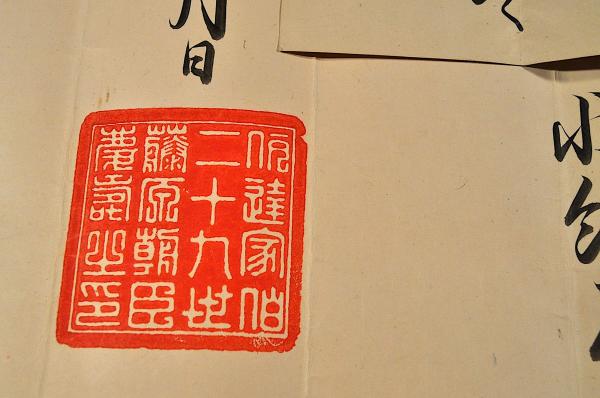 月日
伊達家伯
二十九世
藤原朝臣
慶壽之印